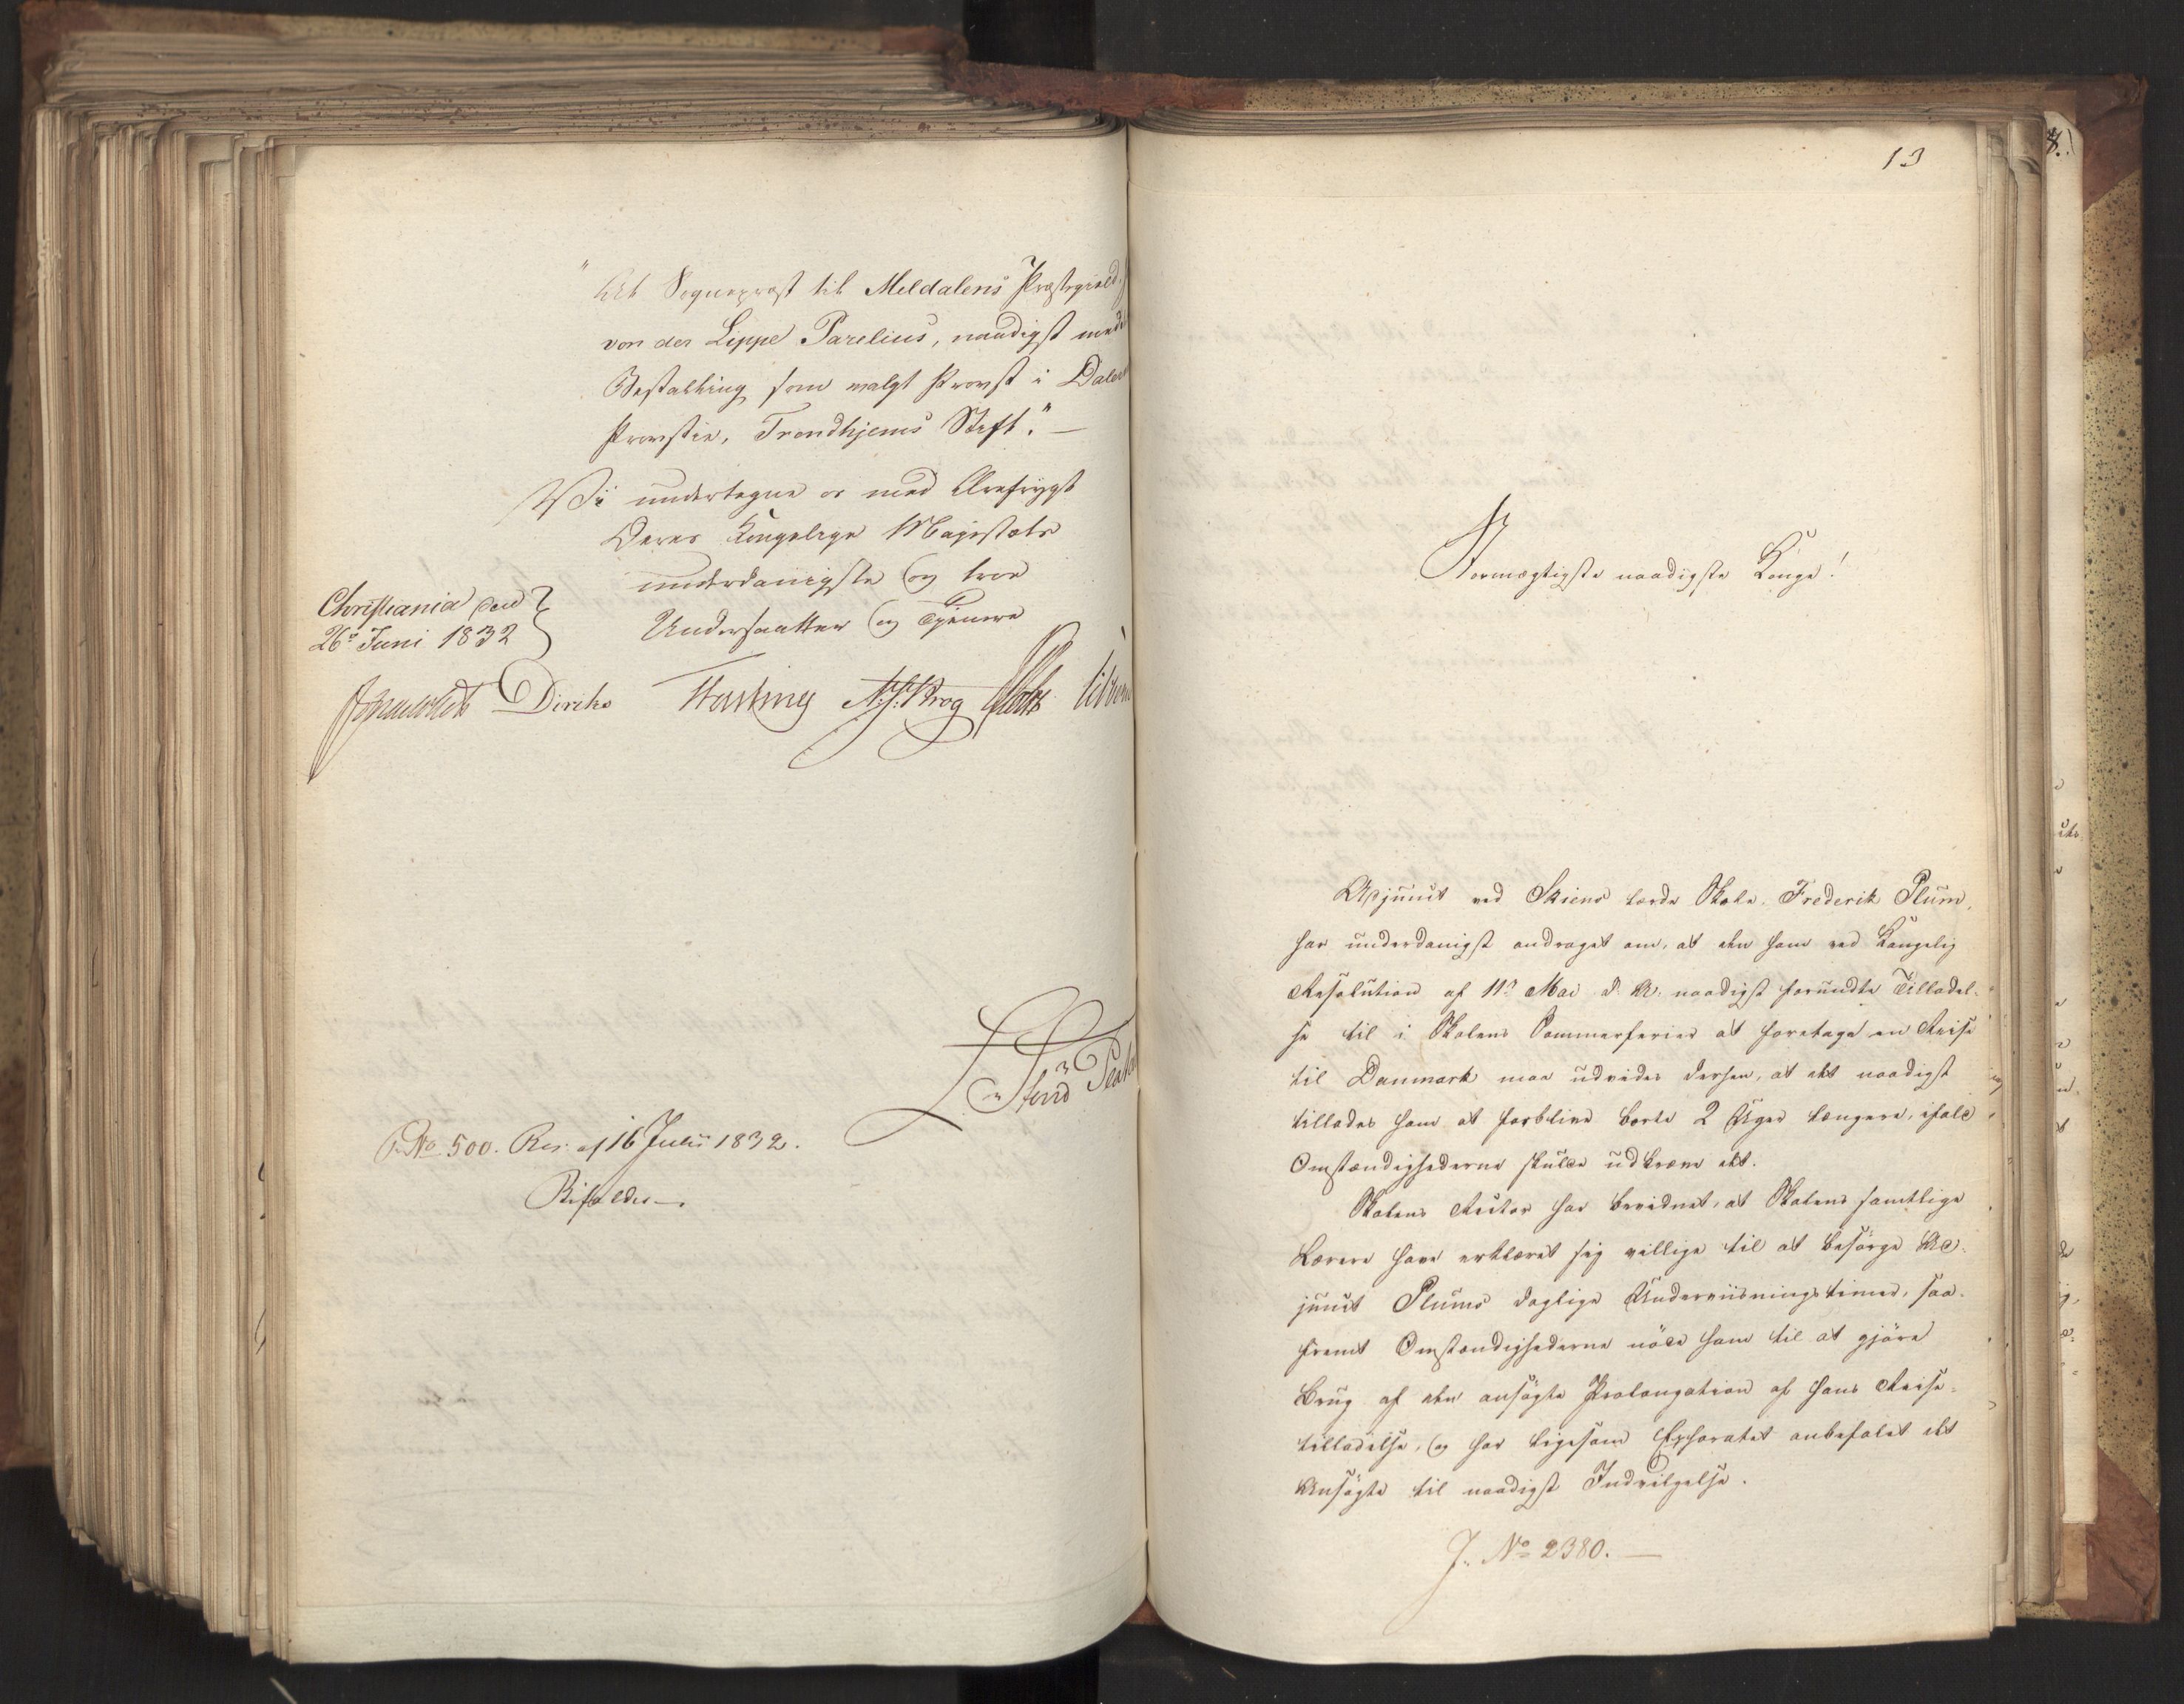 "At Sognepræst til Meldalens Præstegield,
von der Lippe Parelius, naadigst med
Bestalling som valgt Provst i Dalernes
Provstie, Trondhjems Stift." —
Vi undertegne os med Ærefrygt
Deres Kongelige Majestæts
underdanigste og troe
Undersaatter og Tjenere
Christiania den
26de Juni 1832
Diriks Hasting N. J. Krog
No 500. Res. af 16 Julii 1832.
Bifaldes —.
13
Stormægtigste naadigste Konge!
Adjunct ved Skiens lærde Skole, Frederik Plum,
har underdanigst andraget om, at den ham ved Kongelig
Resolution af 11te Mai d. A. naadigst forundte Tilladel-
se til i Skolens Sommerferier at foretage en Reise
til Danmark maa udvides derhen, at det naadigst
tillades ham at forblive borte 2 Uger længere, ifald
Omstændighederne skulde udkræve det.
Skolens Rector har bevidnet, at Skolens samtlige
Lærere have erklæret sig villige til at besørge Ad-
junct Plums daglige Underviisningstimer, saa-
fremt Omstændighederne nøde ham til at gjøre
Brug af den ansøgte Prolongation af hans Reise-
tilladelse, og har ligesom Ephoratet anbefalet det
Ansøgte til naadigst Indvilgelse.
J. No 2380. —